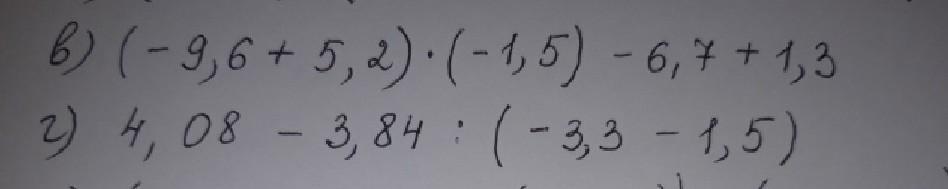 в) (-9,6 + 5,2) · (-1,5) - 6,7 + 1,3
г) 4,08 - 3,84 : (-3,3 - 1,5)